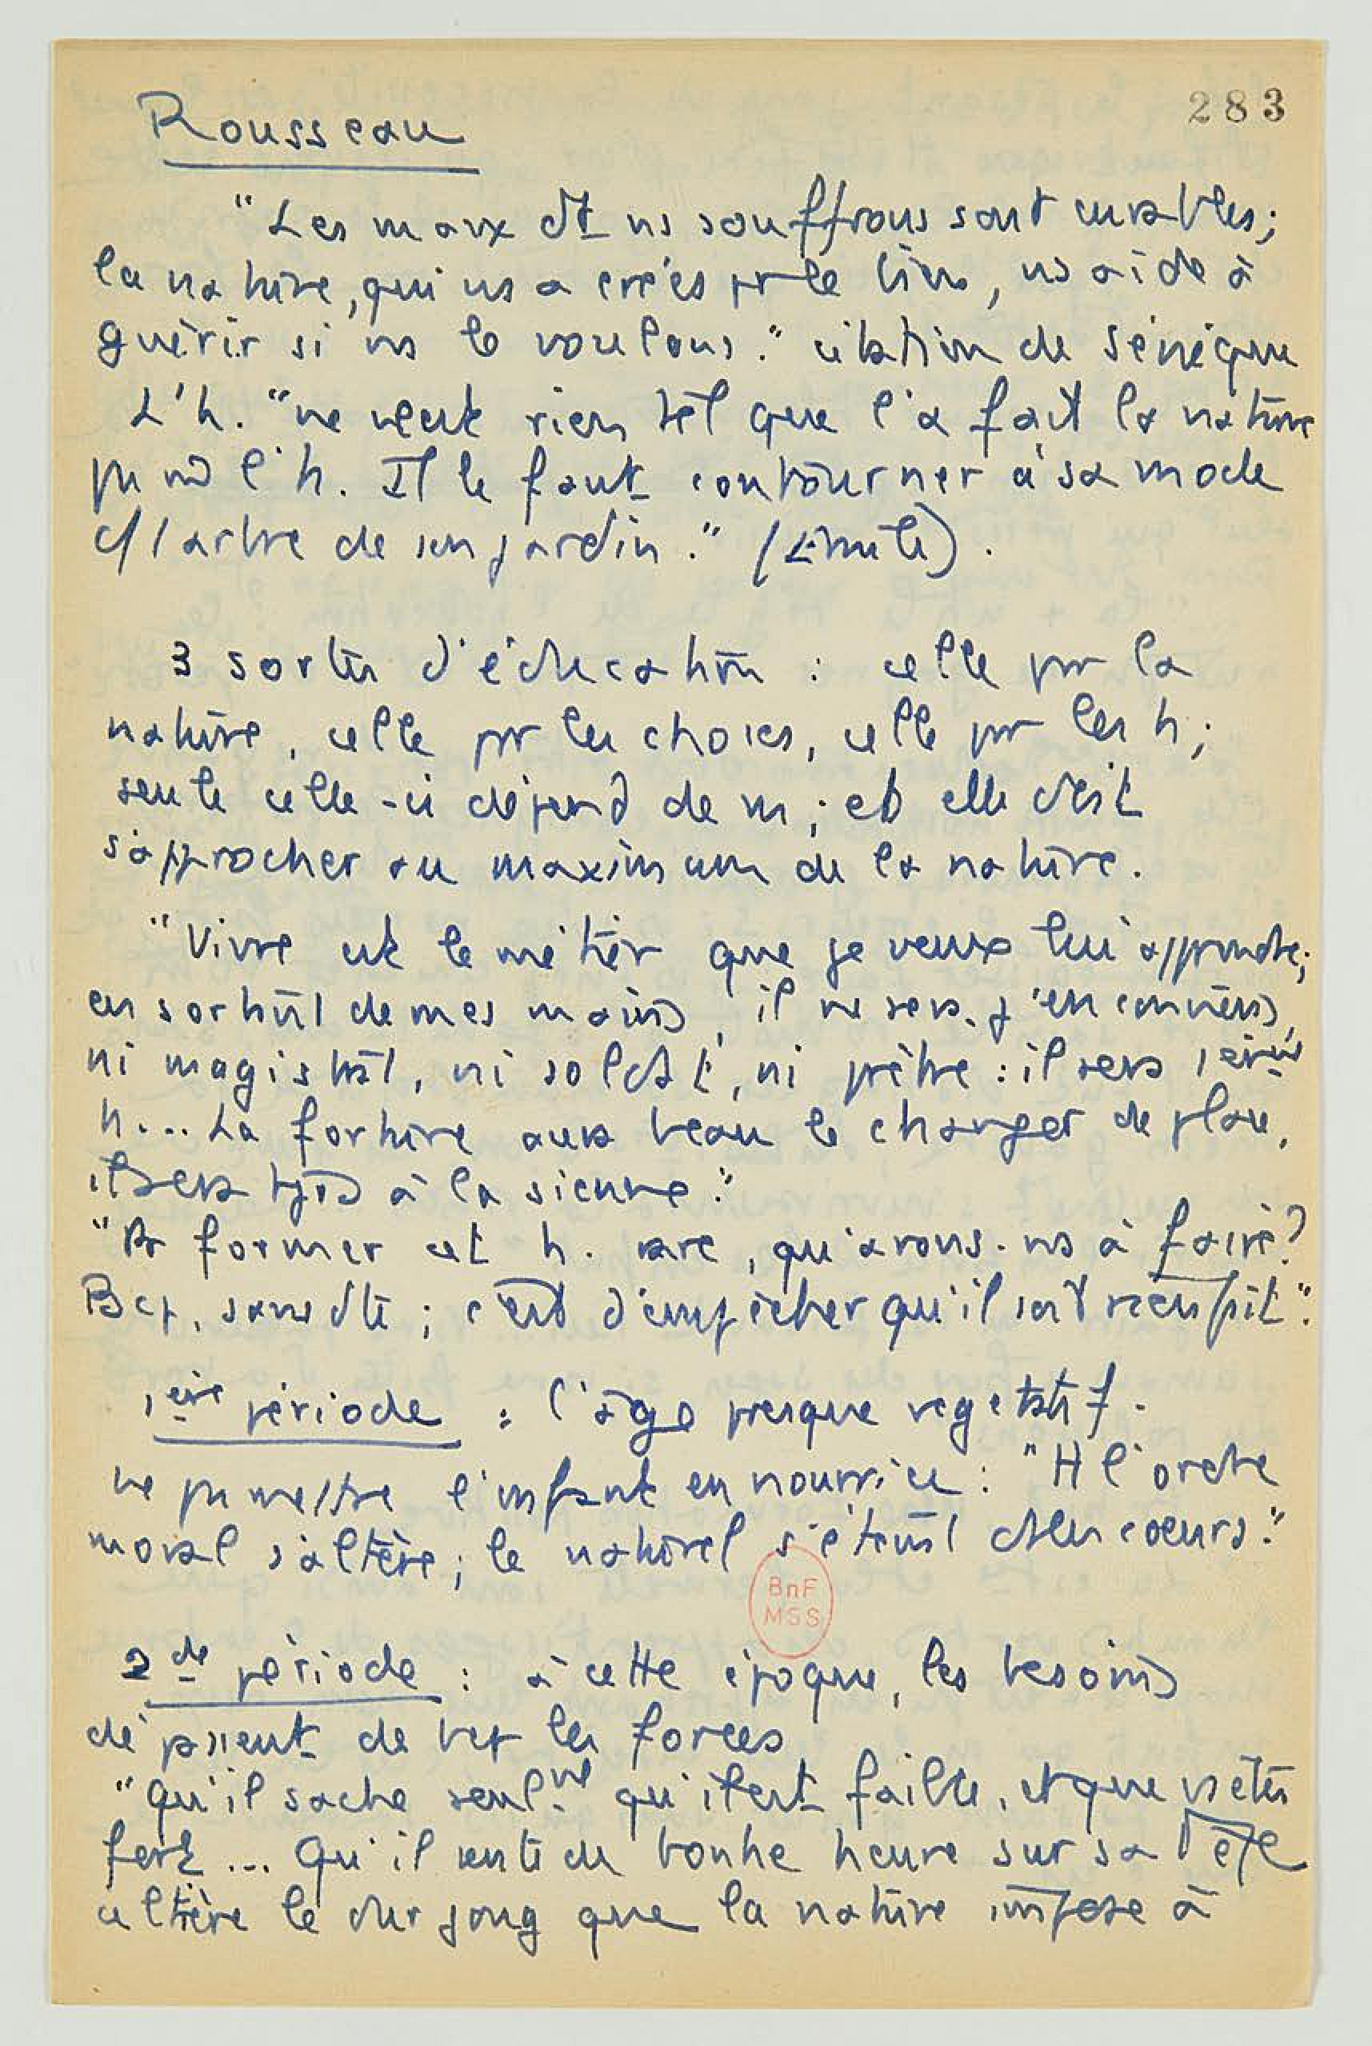 283
Rousseau
"Les maux dt ns souffrons sont curables;
la nature, qui ns a créés pr le bien, ns aide à
guérir si ns le voulons." citation de Sénèque
L'h. "ne veut rien tel que l'a fait la nature
pas m̂ l'h. Il le faut contourner à sa mode
c/ l'arbre de son jardin." (Emile).
3 sortes d'éducation : celle par la
nature, celle par les choses, celle par les h;
seule celle-ci dépend de ns ; et elle doit
s'approcher au maximum de la nature.
"Vivre est le métier que je veux lui apprendre;
en sortant de mes mains, il ne sera, j'en conviens,
ni magistrat, ni soldat, ni prêtre : il sera 1èrmt
h... La fortune aura beau le changer de place,
il sera tjrs à la sienne."
"Pr former cet h. rare, qu'avons-ns à faire?
Bcp, sans dte ; c'est d'empêcher que rien soit fait."
1ère période : l'âge presque végétatif.
ne pas mettre l'enfant en nourrice : "Tt l'ordre
moral s'altère ; le naturel s'éteint ds les cœurs."
BnF
MSS
2de période : à cette époque, les besoins
dépassent de bcp les forces
"Qu'il sache seulmt qu'il est faible, et que vs êtes
fort... Qu'il sente de bonne heure sur sa tête
altière le dur joug que la nature impose à